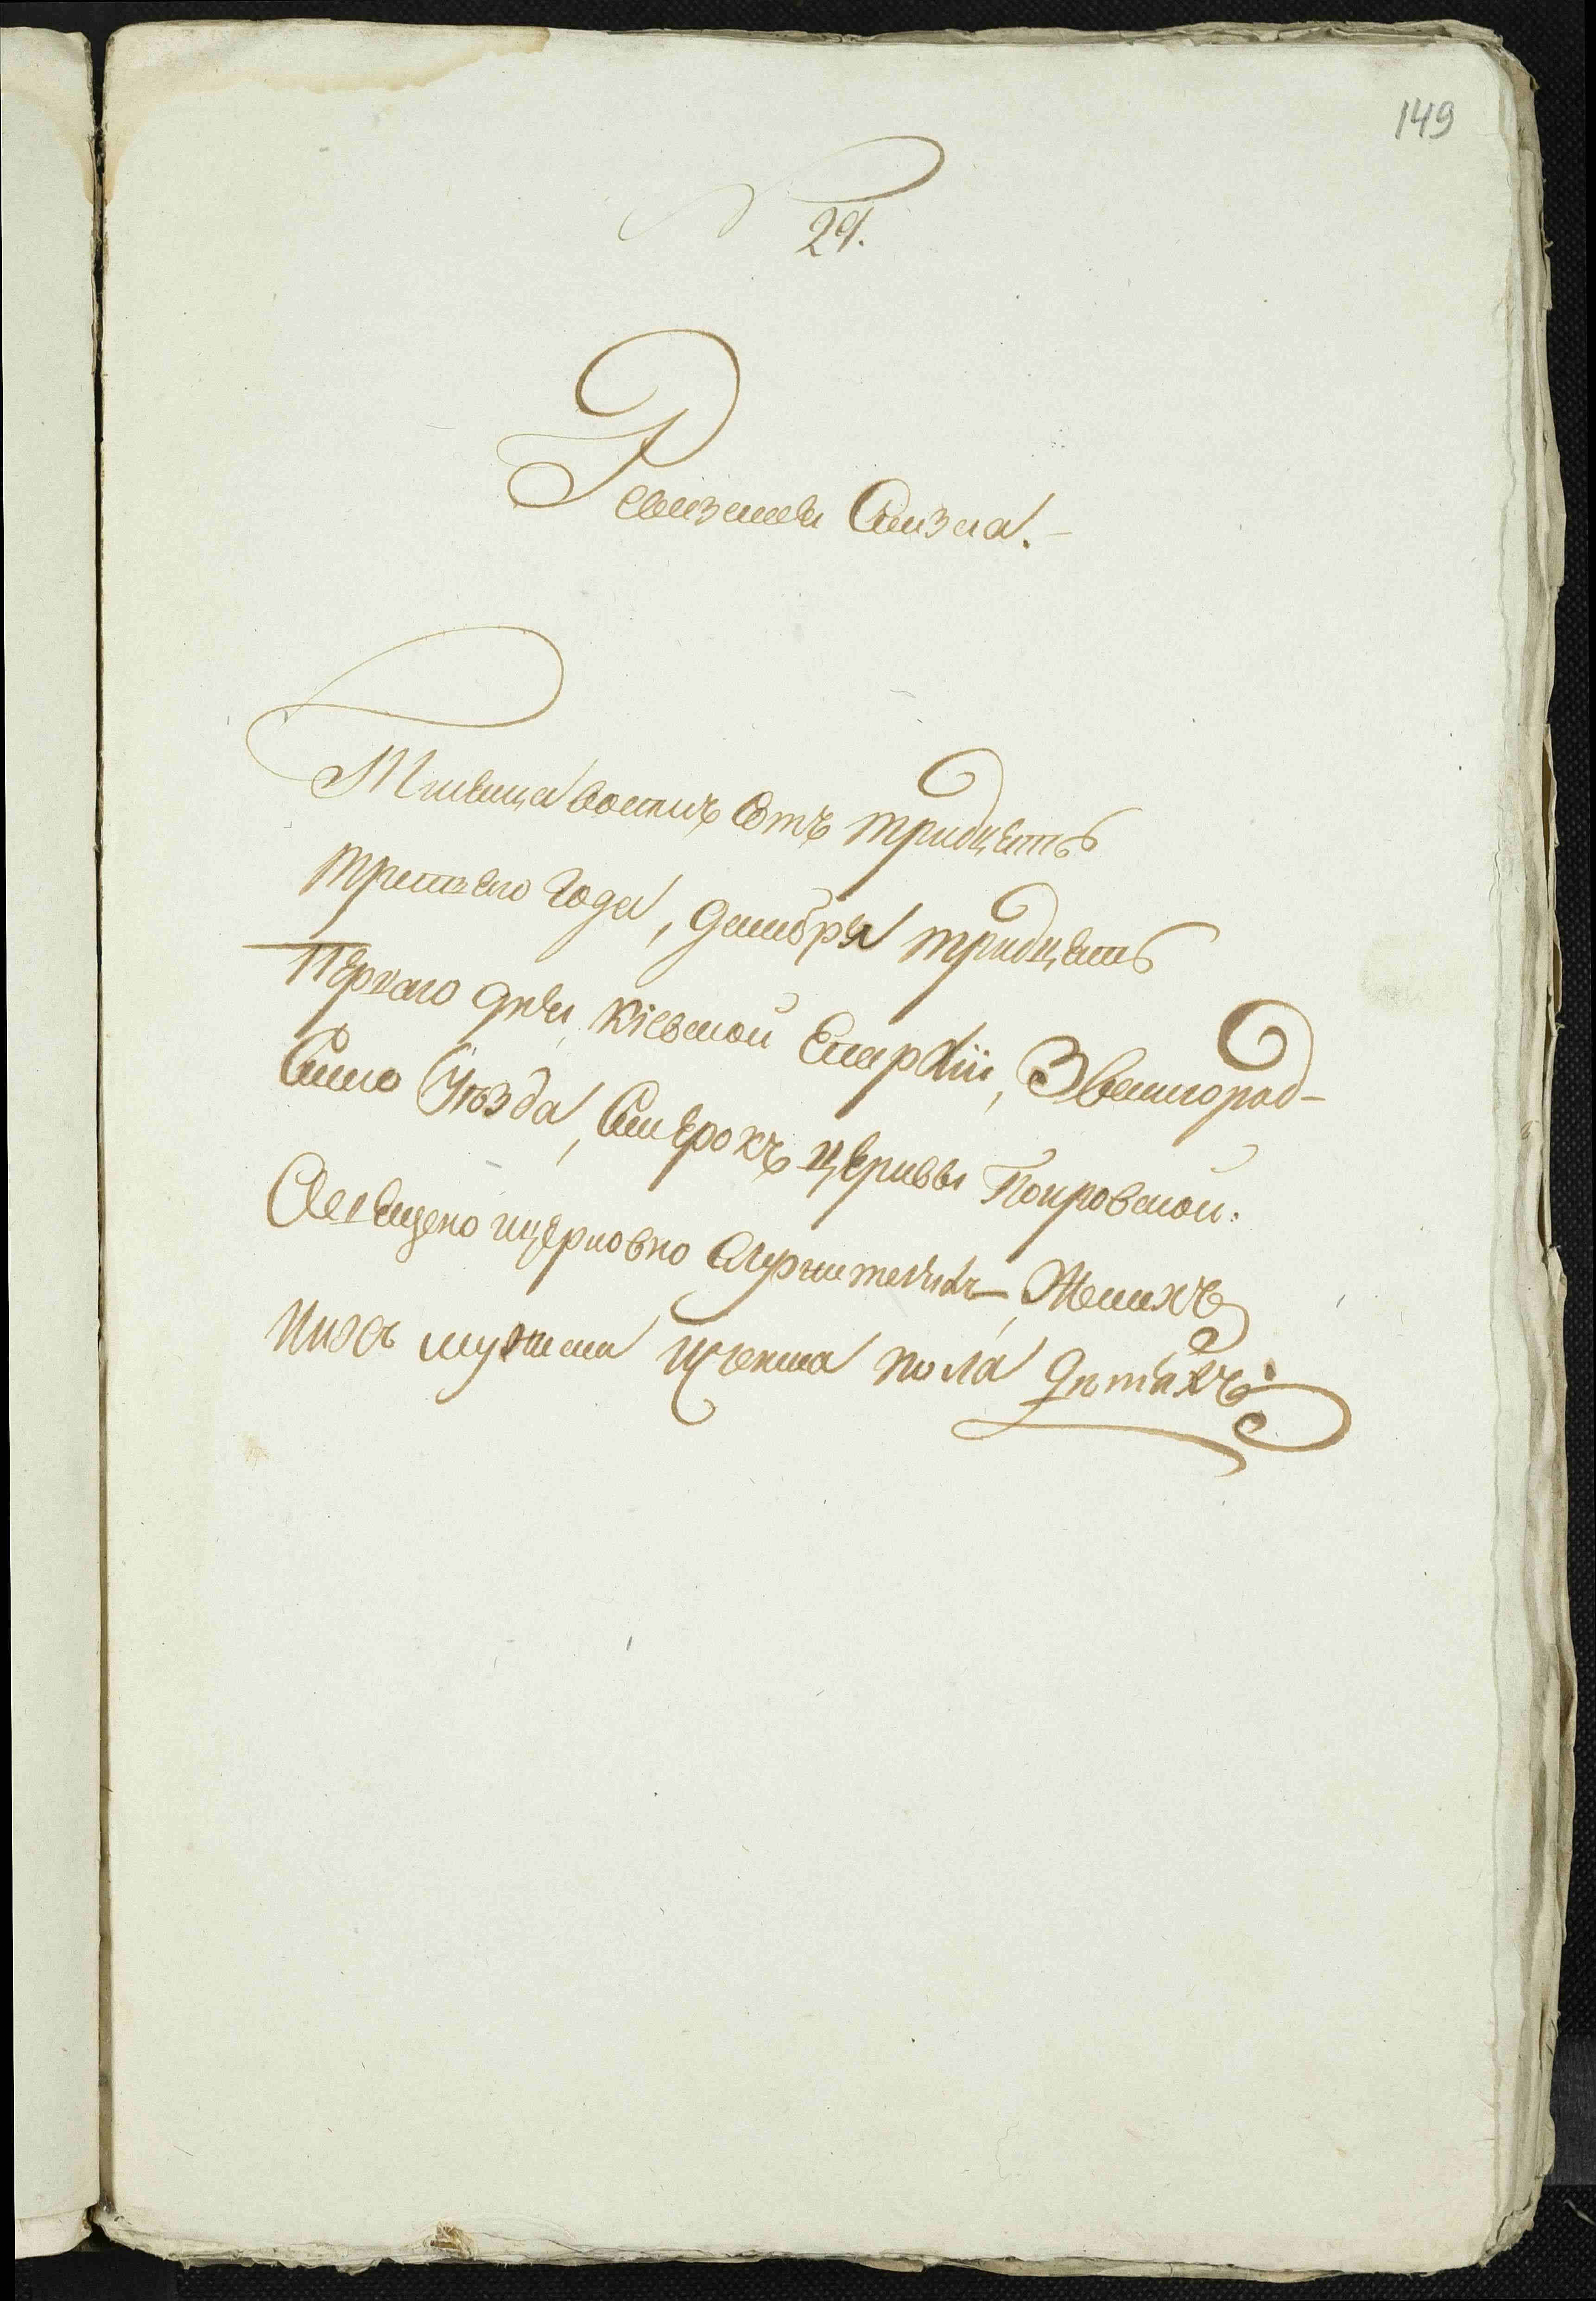 149
N 29.
Ревизская Сказка.-
Тысяча восемь Сотъ тридцать
третьяго года, декабря тридцать
перваго дня, Кіевской Епархіи, Звенигород-
скаго Уѣзда, церквы Покровской.
О священо ицерковно служителяхъ, Женахъ
ихъ мужеска иженска пола дѣтяхъ.